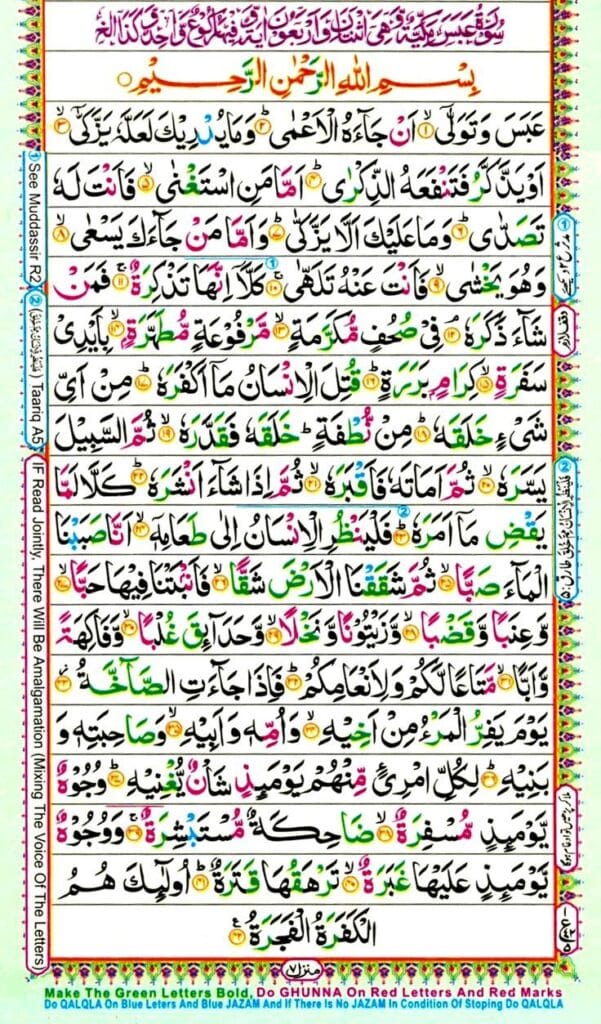 سُوْرَةُ عَبَسَ مَكِّيَّةٌ وَّهِىَ اثْنَتَانِ وَاَرْبَعُوْنَ اٰيَةً وَّفِيْهَا رُكُوْعٌ وَّاحِدٌ
بِسْمِ اللهِ الرَّحْمٰنِ الرَّحِيْمِ
عَبَسَ وَتَوَلّٰىۤ ۙ﴿۱﴾ اَنْ جَآءَهُ الْاَعْمٰىؕ ﴿۲﴾ وَمَا يُدْرِيْكَ لَعَلَّهٗ يَزَّكّٰىۤ ۙ﴿۳﴾
اَوْ يَذَّكَّرُ فَتَنْفَعَهُ الذِّكْرٰىؕ ﴿۴﴾ اَمَّا مَنِ اسْتَغْنٰىۙ ﴿۵﴾ فَاَنْتَ لَهٗ
تَصَدّٰىؕ ﴿۶﴾ وَمَا عَلَيْكَ اَلَّا يَزَّكّٰىؕ ﴿۷﴾ وَاَمَّا مَنْ جَآءَكَ يَسْعٰىۙ ﴿۸﴾
وَهُوَ يَخْشٰىۙ ﴿۹﴾ فَاَنْتَ عَنْهُ تَلَهّٰىۚ ﴿۱۰﴾ كَلَّاۤ اِنَّهَا تَذْكِرَةٌۚ ﴿۱۱﴾ فَمَنْ
شَآءَ ذَكَرَهٗۘ ﴿۱۲﴾ فِىْ صُحُفٍ مُّكَرَّمَةٍۙ ﴿۱۳﴾ مَّرْفُوْعَةٍ مُّطَهَّرَةٍۭۙ ﴿۱۴﴾ بِاَيْدِىْ
سَفَرَةٍۙ ﴿۱۵﴾ كِرَامٍۭ بَرَرَةٍؕ ﴿۱۶﴾ قُتِلَ الْاِنْسَانُ مَاۤ اَكْفَرَهٗؕ ﴿۱۷﴾ مِنْ اَىِّ
شَىْءٍ خَلَقَهٗؕ ﴿۱۸﴾ مِنْ نُّطْفَةٍؕ خَلَقَهٗ فَقَدَّرَهٗۙ ﴿۱۹﴾ ثُمَّ السَّبِيْلَ
يَسَّرَهٗۙ ﴿۲۰﴾ ثُمَّ اَمَاتَهٗ فَاَقْبَرَهٗۙ ﴿۲۱﴾ ثُمَّ اِذَا شَآءَ اَنْشَرَهٗؕ ﴿۲۲﴾ كَلَّا لَمَّا
يَقْضِ مَاۤ اَمَرَهٗؕ ﴿۲۳﴾ فَلْيَنْظُرِ الْاِنْسَانُ اِلٰى طَعَامِهٖۤۙ ﴿۲۴﴾ اَنَّا صَبَبْنَا
الْمَآءَ صَبًّاۙ ﴿۲۵﴾ ثُمَّ شَقَقْنَا الْاَرْضَ شَقًّاۙ ﴿۲۶﴾ فَاَنْۢبَتْنَا فِيْهَا حَبًّاۙ ﴿۲۷﴾
وَّعِنَبًا وَّقَضْبًاۙ ﴿۲۸﴾ وَّزَيْتُوْنًا وَّنَخْلًاۙ ﴿۲۹﴾ وَّحَدَآئِقَ غُلْبًاۙ ﴿۳۰﴾ وَّفَاكِهَةً
وَّاَبًّاۙ ﴿۳۱﴾ مَّتَاعًا لَّكُمْ وَلِاَنْعَامِكُمْؕ ﴿۳۲﴾ فَاِذَا جَآءَتِ الصَّآخَّةُ ﴿۳۳﴾
يَوْمَ يَفِرُّ الْمَرْءُ مِنْ اَخِيْهِۙ ﴿۳۴﴾ وَاُمِّهٖ وَاَبِيْهِۙ ﴿۳۵﴾ وَصَاحِبَتِهٖ وَ
بَنِيْهِؕ ﴿۳۶﴾ لِكُلِّ امْرِئٍ مِّنْهُمْ يَوْمَئِذٍ شَاْنٌ يُّغْنِيْهِؕ ﴿۳۷﴾ وُجُوْهٌ
يَّوْمَئِذٍ مُّسْفِرَةٌۙ ﴿۳۸﴾ ضَاحِكَةٌ مُّسْتَبْشِرَةٌۚ ﴿۳۹﴾ وَوُجُوْهٌ
يَّوْمَئِذٍ عَلَيْهَا غَبَرَةٌۙ ﴿۴۰﴾ تَرْهَقُهَا قَتَرَةٌؕ ﴿۴۱﴾ اُولٰٓئِكَ هُمُ
الْكَفَرَةُ الْفَجَرَةُ ﴿۴۲﴾
منزل۷
① See Muddassir R2
② Taariq A5
IF Read Jointly, There Will Be Amalgamation (Mixing The Voice Of The Letters)
Make The Green Letters Bold, Do GHUNNA On Red Letters And Red Marks
Do QALQLA On Blue Leters And Blue JAZAM And If There Is No JAZAM In Condition Of Stoping Do QALQLA